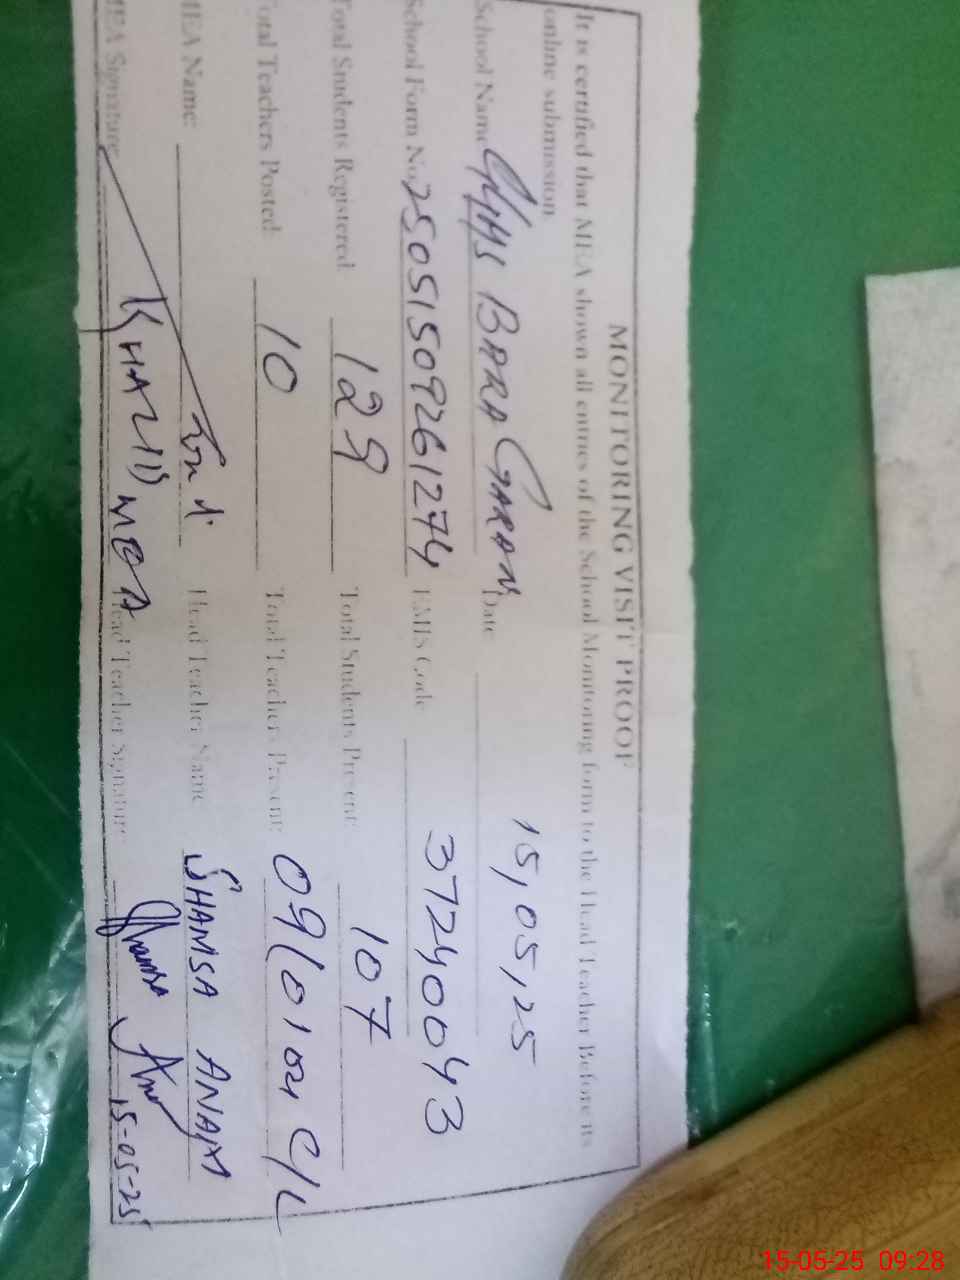 MONITORING VISIT PROOF
It is certified that MEA shown all entries of the School Monitoring form to the Head Teacher Before its
online submission
School Name GHHS BARA GARAN Date 15,05,25
School Form No. 25051509261274 EMIS Code 37240043
Total Students Registered: 129 Total Students Present: 107
Total Teachers Posted: 10 Total Teachers Present: 09(01 on C/L
MEA Name: Head Teacher Name SHAMSA ANAM
MEA Signature: KHALID MEA Head Teacher Signature: Shamsa
15-05-25
15-05-25 09:28